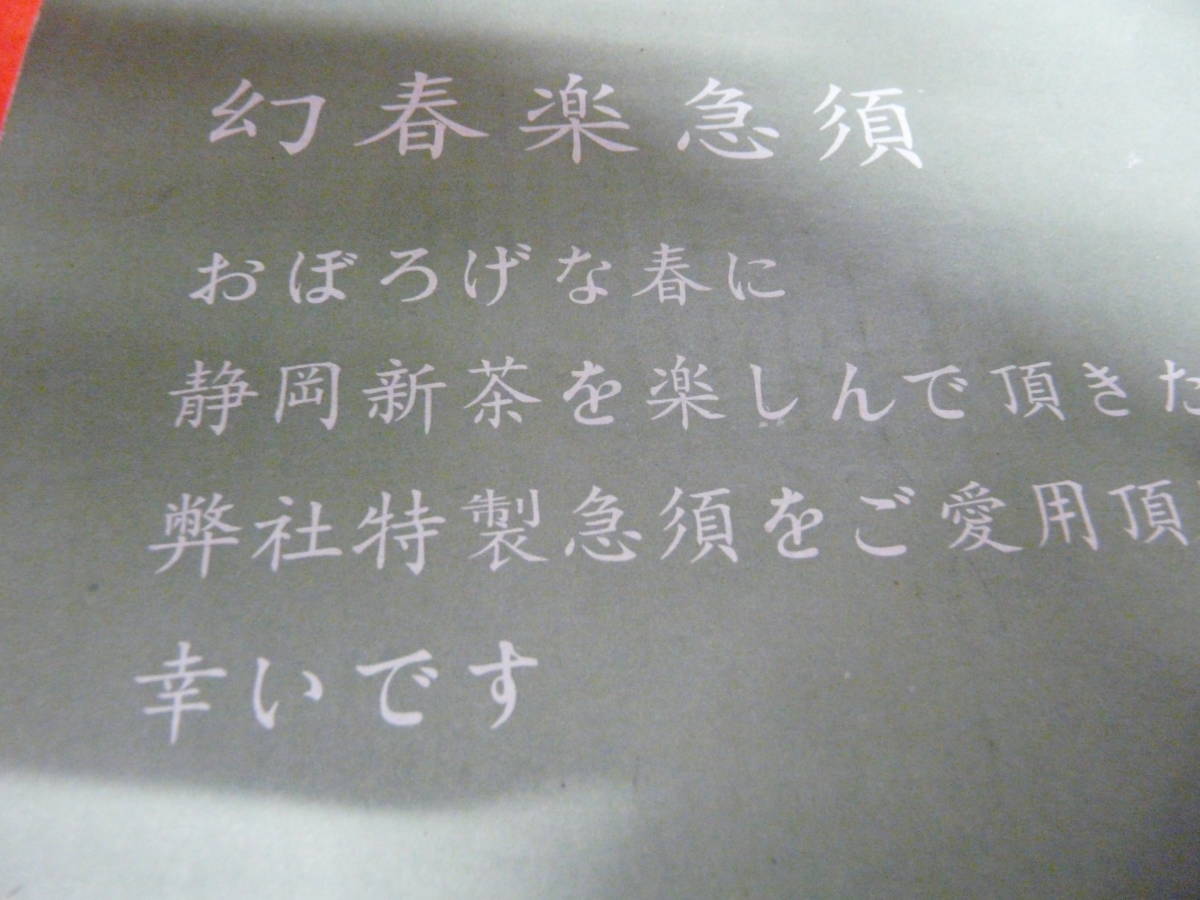 幻春楽急須
おぼろげな春に
静岡新茶を楽しんで頂きた
弊社特製急須をご愛用頂
幸いです